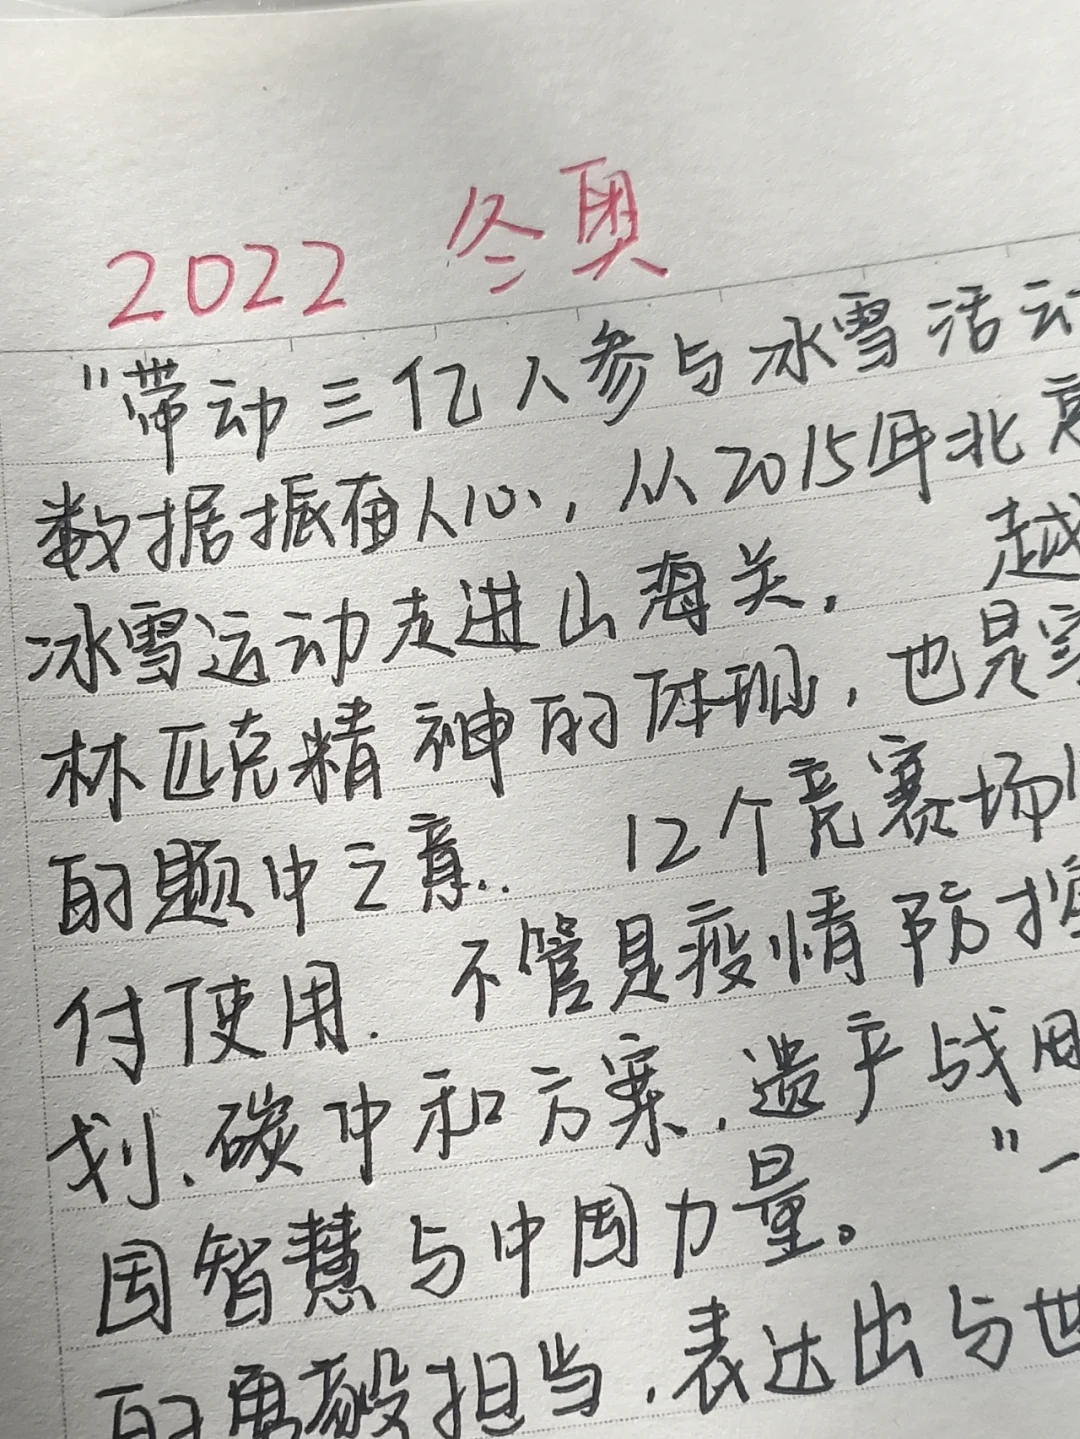 2022 冬奥
"带动三亿人参与冰雪活动
数据振奋人心，从2015年北京
冰雪运动走进山海关． 越
林匹克精神的体现，也是实
的题中之意． 12个竞赛场
付使用． 不管是疫情防控
划、碳中和方案、遗产战
国智慧与中国力量。 "一
的勇毅担当、表达出与世